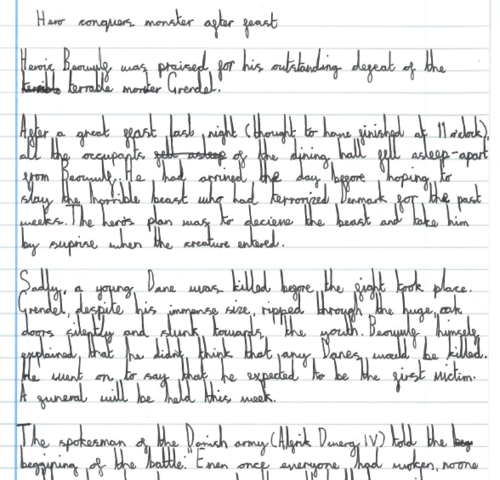 Hero conquers monster after feast
Heroic Beowulf was praised for his outstanding defeat of the
terrable monster Grendel.
After a great feast last night (thought to have finished at 11 o'clock),
all the occupants of the dining hall fell asleep-apart
from Beowulf. He had arrived the day before hoping to
slay the horrible beast who had terrorized Denmark for the past
weeks. The hero's plan was to decieve the beast and take him
by suprise when the creature entered.
Sadly, a young Dane was killed before the fight took place.
Grendel, despite his immense size, ripped through the huge, oak
doors silently and slunk towards the youth. Beowulf himself
explained that he didn't think that any Danes would be killed.
He went on to say that he expected to be the first victim.
A funeral will be held this week.
The spokesman of the Danish army (Alfrik Dwerg IV) told the
beggining of the battle. "Even once everyone had woken, no one